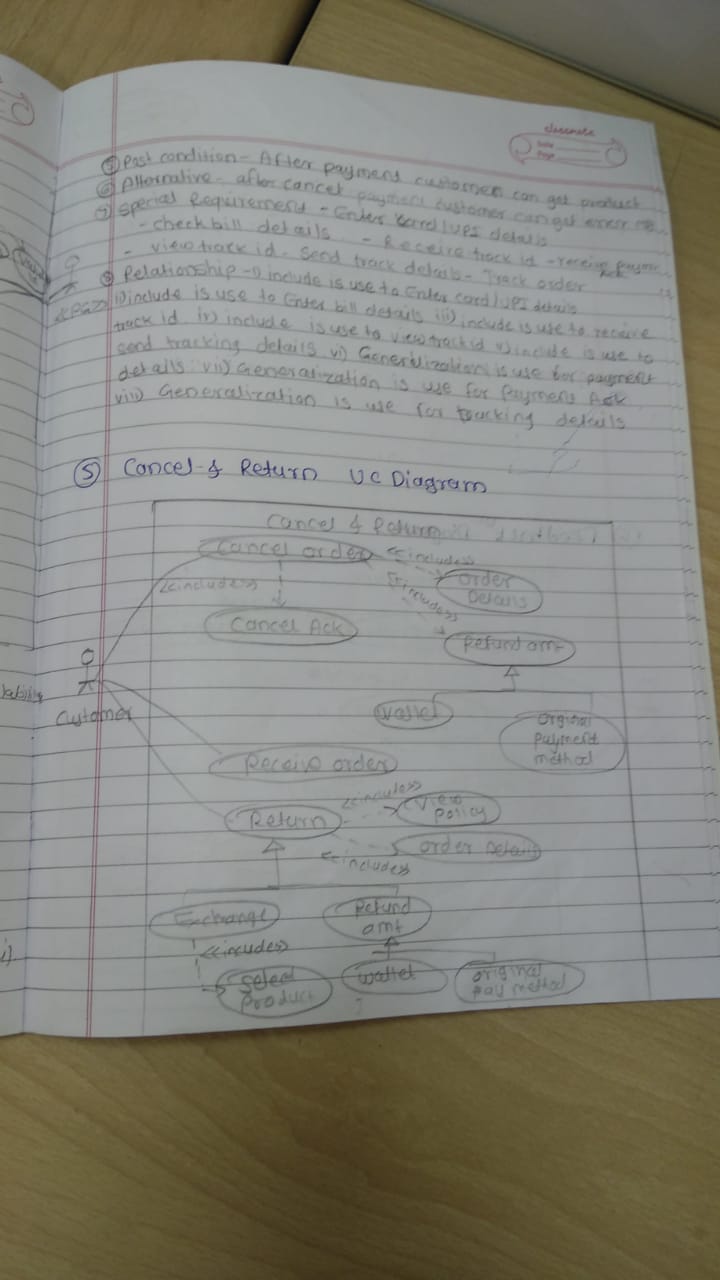 classmate
Date
Page
⑤ Post condition - After payment customer can get product
⑥ Alternative - after cancel payment customer can get error
⑦ Special Requirement - Enter card/UPI details
- check bill details - Receive track id - receive
- view track id. Send track details - Track order
⑧ Relationship - i) include is use to Enter card/UPI details
ii) include is use to Enter bill details iii) include is use to receive
track id iv) include is use to view track id v) include is use to
send tracking details vi) Generilization is use for payment
details vii) Generalization is use for Payment Ack
viii) Generalization is use for tracking details
⑤ Cancel & Return UC Diagram
Cancel & Return
Cancel order
<<includes>>
Order
Details
<<includes>>
<<includes>>
Cancel Ack
Refund amt
Customer
Wallet
Orginal
Payment
method
Receive order
<<incules>>
View
Policy
Return
Order Details
<<includes>>
Exchange
Refund
amt
<<incudes>>
Select
Product
Wallet
original
pay method